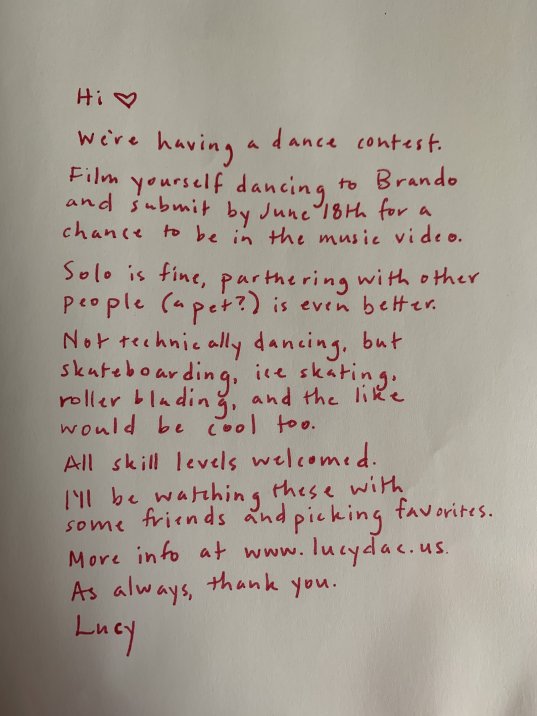 Hi ♡
We're having a dance contest.
Film yourself dancing to Brando
and submit by June 18th for a
chance to be in the music video.
Solo is fine, parthering with other
people (a pet?) is even better.
Not technically dancing, but
skateboarding, ice skating,
roller blading, and the like
would be cool too.
All skill levels welcomed.
I'll be watching these with
some friends and picking favorites.
More info at www.lucydac.us.
As always, thank you.
Lucy